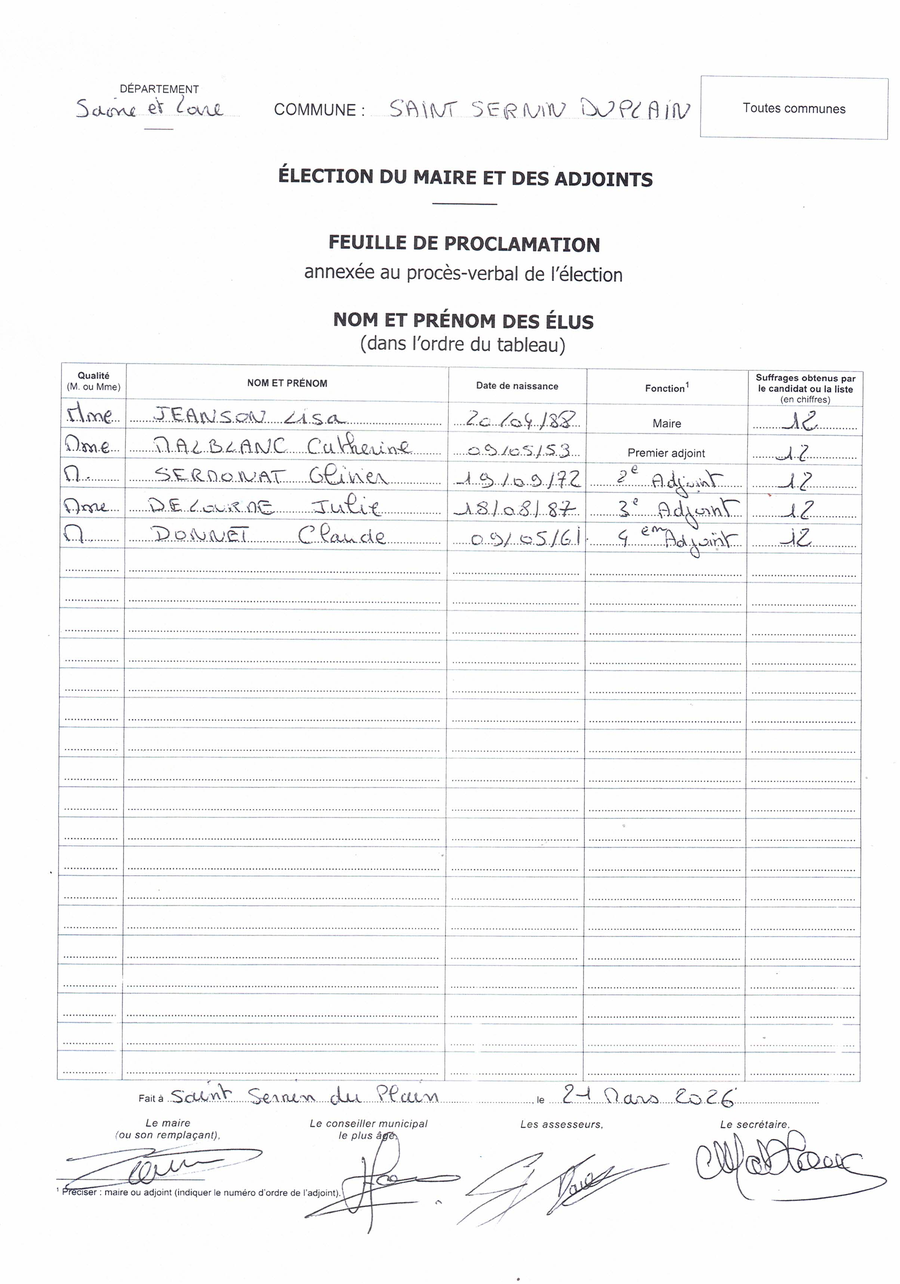 DÉPARTEMENT
Saône et Loire
COMMUNE : SAINT SERNIN DU PLAIN
Toutes communes
ÉLECTION DU MAIRE ET DES ADJOINTS
FEUILLE DE PROCLAMATION
annexée au procès-verbal de l'élection
NOM ET PRÉNOM DES ÉLUS
(dans l'ordre du tableau)
Qualité (M. ou Mme) NOM ET PRÉNOM Date de naissance Fonction¹ Suffrages obtenus par le candidat ou la liste (en chiffres)
Mme JEANSON Lisa 20/04/88 Maire 12
Mme MALBLANC Catherine 09/05/53 Premier adjoint 12
M. SERMONAT Olivier 19/09/72 2e Adjoint 12
Mme DELORME Julie 18/08/87 3e Adjoint 12
M DONNET Claude 09/05/61 4em Adjoint 12
Fait à Saint Sernin du Plain, le 21 Mars 2026
Le maire (ou son remplaçant), Le conseiller municipal le plus âgé, Les assesseurs, Le secrétaire,
¹ Préciser : maire ou adjoint (indiquer le numéro d'ordre de l'adjoint).